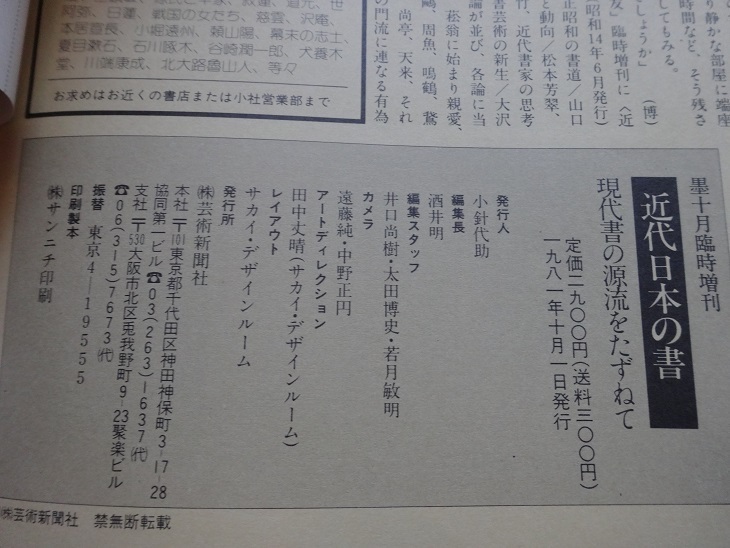 り静かな部屋に端座
時間など、そう残さ
してもみる。
しょうか」　(博)
友」臨時増刊に〈近
昭和14年6月発行)
正昭和の書道/山口
と動向/松本芳翠、
竹、近代書家の思考
書芸術の新生/大沢
論が並び、各論に当
菘翁に始まり親愛、
鶴、周魚、鳴鶴、鵞
尚亭、天来、それ
の門流に連なる有為
世阿弥、日蓮、戦国の女たち、慈雲、沢庵、
本居宣長、小堀遠州、頼山陽、幕末の志士、
夏目漱石、石川啄木、谷崎潤一郎、犬養木
堂、川端康成、北大路魯山人、等々
お求めはお近くの書店または小社営業部まで
墨十月臨時増刊
近代日本の書
現代書の源流をたずねて
定価二九〇〇円(送料三〇〇円)
一九八一年十月一日発行
発行人
小針代助
編集長
酒井明
編集スタッフ
井口尚樹・太田博史・若月敏明
カメラ
遠藤純・中野正円
アートディレクション
田中丈晴(サカイ・デザインルーム)
レイアウト
サカイ・デザインルーム
発行所
㈱芸術新聞社
本社 〒101 東京都千代田区神田神保町3-17-28
協同第一ビル☎03(263)1637(代)
支社 〒530 大阪市北区兎我野町9-23聚楽ビル
☎06(315)7673(代)
振替 東京4―19555
印刷製本
㈱サンニチ印刷
㈱芸術新聞社　禁無断転載